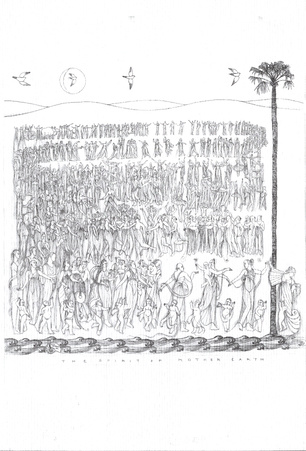 THE SPIRIT OF MOTHER EARTH